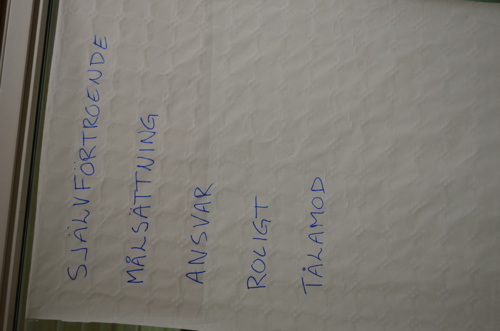 SJÄLVFÖRTROENDE
MÅLSÄTTNING
ANSVAR
ROLIGT
TÅLAMOD